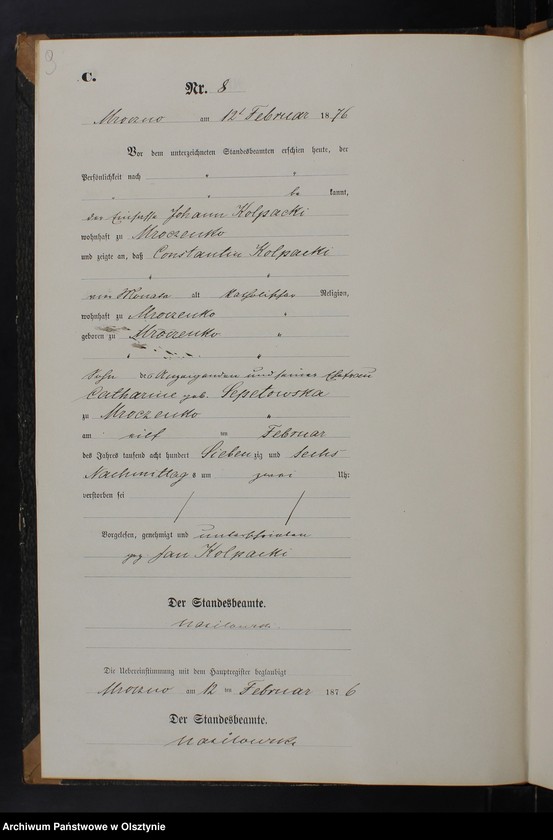 9
C.
Nr. 8
Mroczno am 12t Februar 1876
Vor dem unterzeichneten Standesbeamten erschien heute, der
Persönlichkeit nach
be kannt,
der Einsasse Johann Kolpacki
wohnhaft zu Mroczenko
und zeigte an, daß Constantin Kolpacki
vier Monate alt katholischer Religion,
wohnhaft zu Mroczenko
geboren zu Mroczenko
Sohn des Anzeigenden und seiner Ehefrau
Catharine geb. Sepetowska
zu Mroczenko
am eilf ten Februar
des Jahres tausend acht hundert Sieben zig und sechs
Nachmittags um zwei Uhr
verstorben sei
Vorgelesen, genehmigt und unterschrieben
gez Jan Kolpacki
Der Standesbeamte.
Die Uebereinstimmung mit dem Hauptregister beglaubigt
Mroczno am 12 ten Februar 1876
Der Standesbeamte.
Archiwum Państwowe w Olsztynie